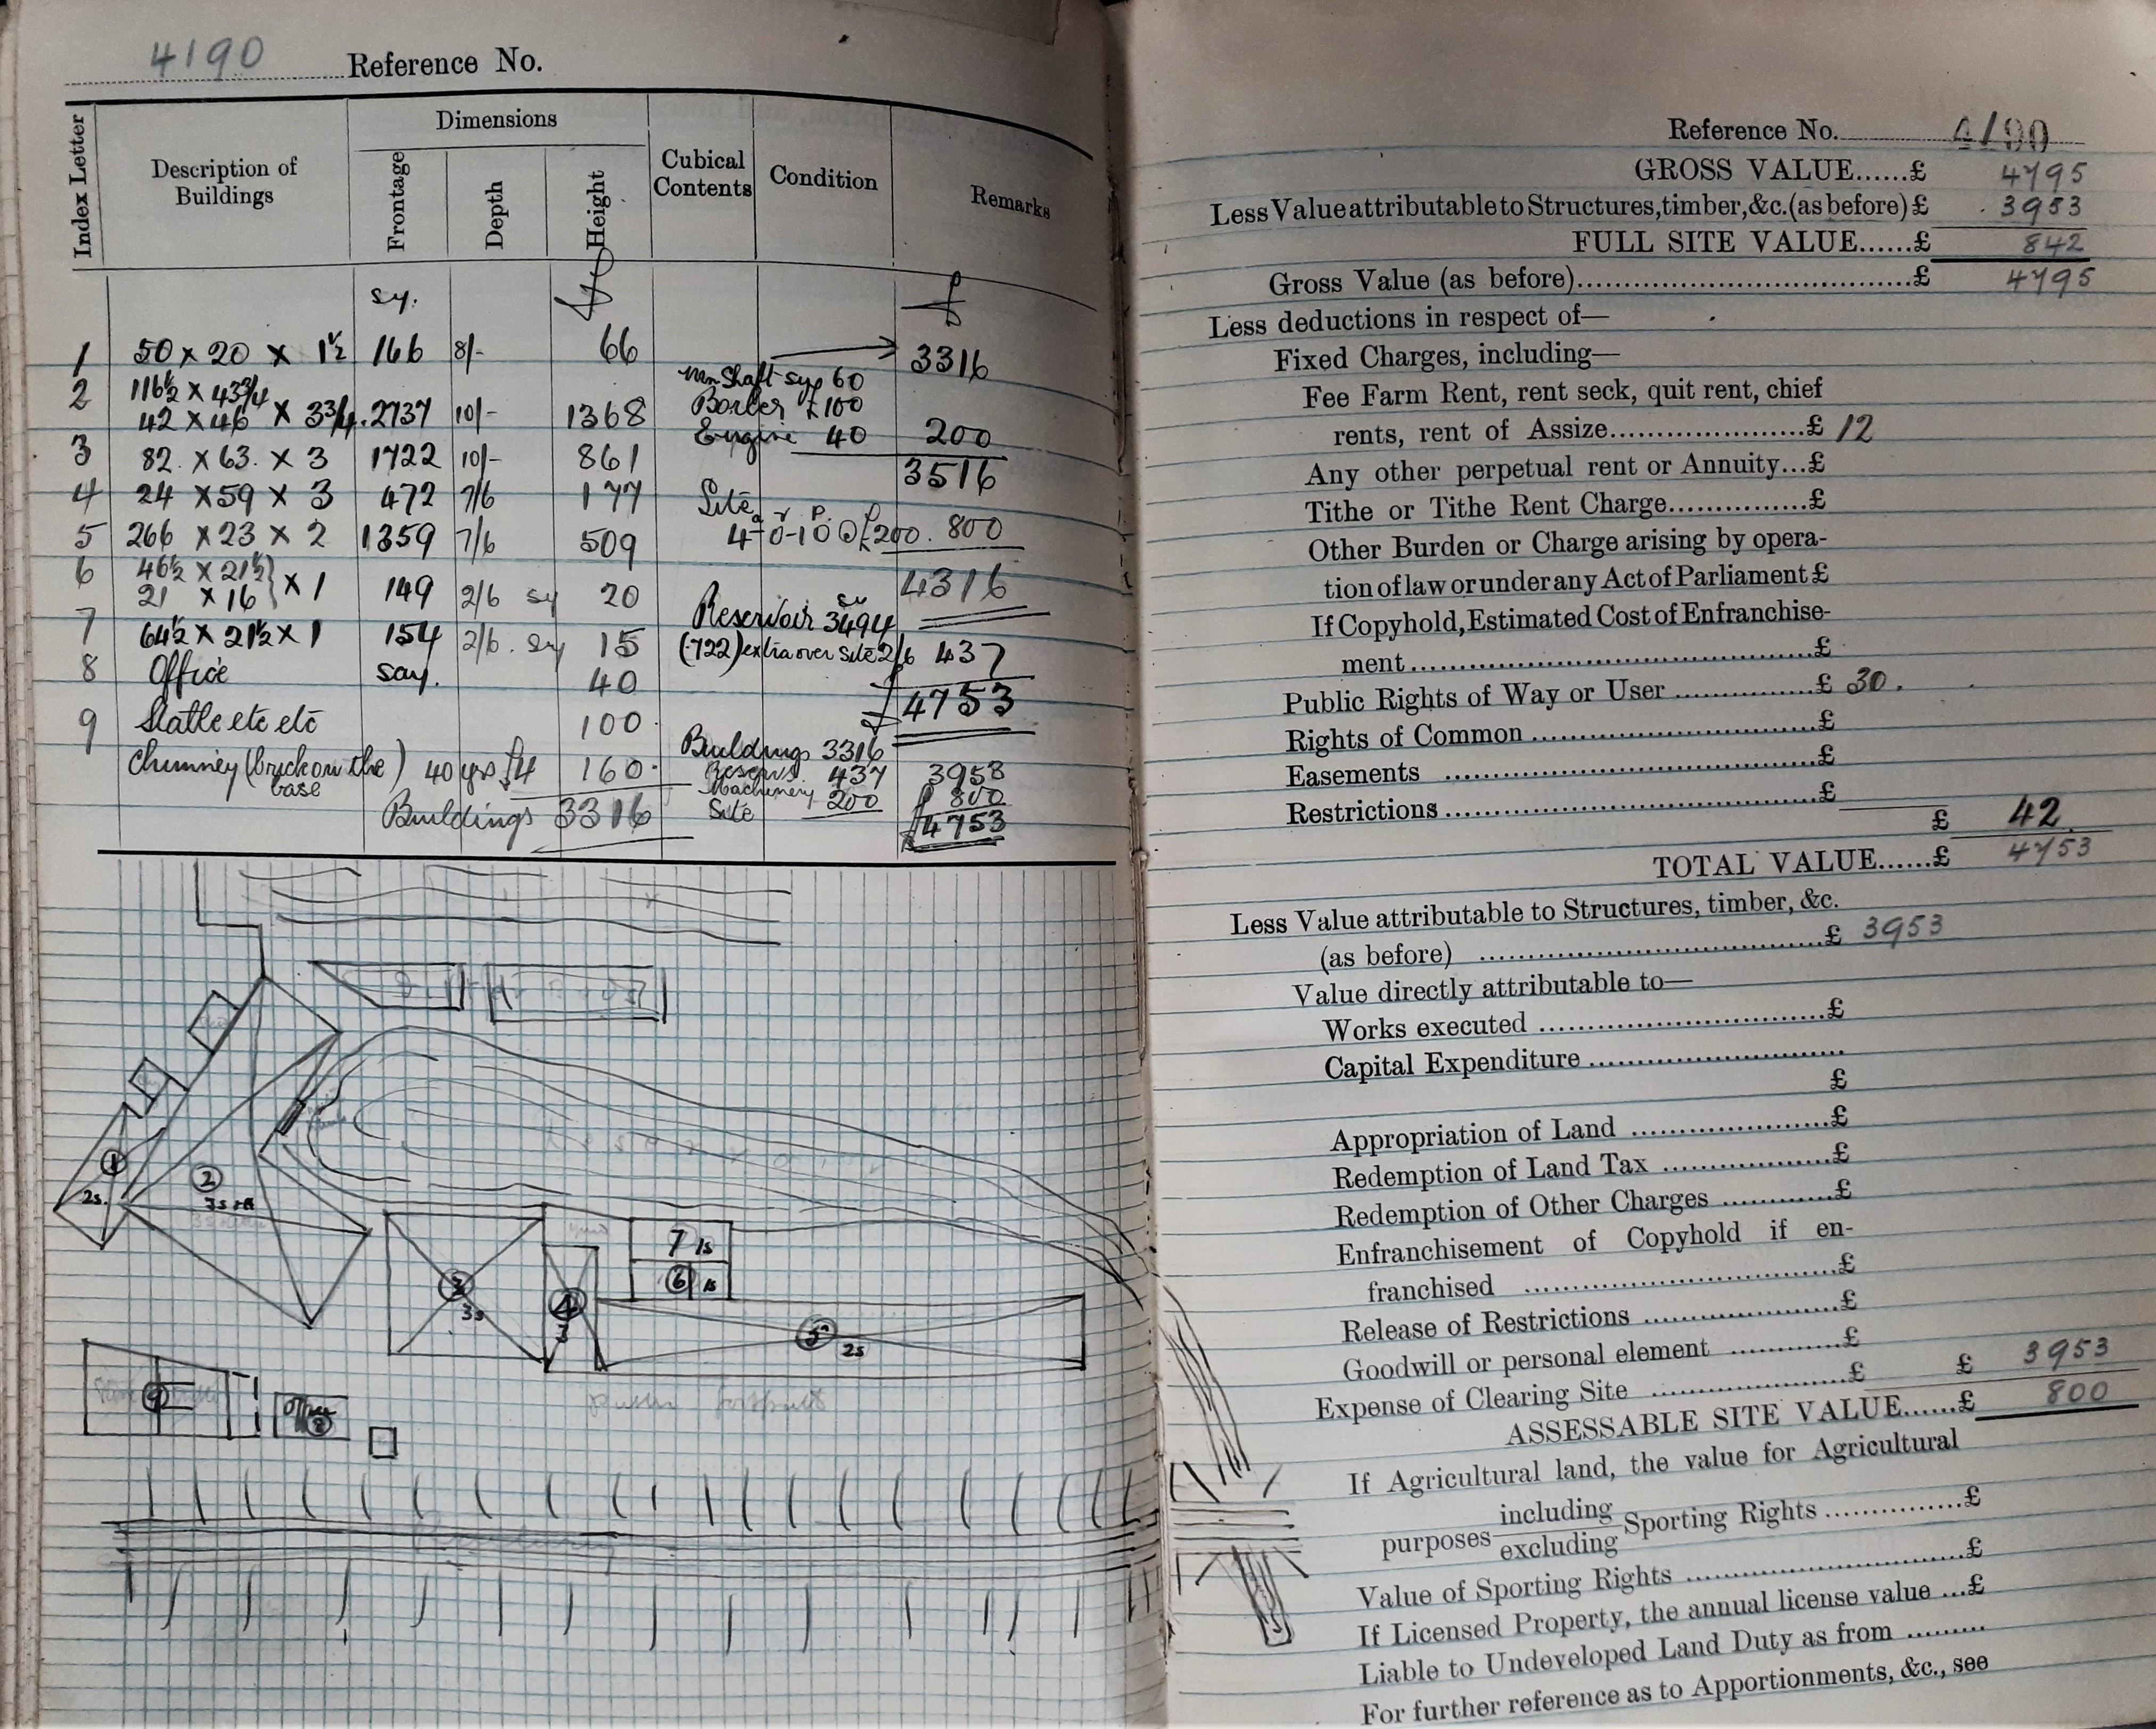 4190 Reference No.
Index Letter
Description of Buildings
Dimensions
Frontage
Depth
Height
Cubical Contents
Condition
Remarks
sy. £ £
1 50 x 20 x 1½ 166 8/- 66 3316
Shaft say 60
2 116½ x 43¾
42 x 46 x 3¾ 2737 10/- 1368 Boiler £100
Engine 40 200
3 82 x 63 x 3 1722 10/- 861 3516
4 24 x 59 x 3 472 7/6 177 Site a r p £
5 266 x 23 x 2 1359 7/6 509 4-0-10 @ £200 . 800
6 46½ x 21½
21 x 16 } x 1 149 2/6 sy 20 4316
Reservoir sy 3494
7 64½ x 21½ x 1 154 2/6 . sy 15 (.722) extra over site 2/6 437
8 Office say. 40 £4753
9 Statle etc etc 100
Buildings 3316
Chimney (brick on the base) 40 yds £4 160 Reserv. 437 3958
Machinery 200 800
Buildings 3316 Site £4753
Reservoir
1 2s.
2 3s + a
3 3s
4 3
7 1s
6 1s
5 2s
9
Office 8
public footpath
Reference No. 4190
GROSS VALUE......£ 4795
Less Value attributable to Structures, timber, &c. (as before) £ 3953
FULL SITE VALUE......£ 842
Gross Value (as before)......£ 4795
Less deductions in respect of—
Fixed Charges, including—
Fee Farm Rent, rent seck, quit rent, chief
rents, rent of Assize......£ 12
Any other perpetual rent or Annuity...£
Tithe or Tithe Rent Charge......£
Other Burden or Charge arising by opera-
tion of law or under any Act of Parliament £
If Copyhold, Estimated Cost of Enfranchise-
ment......£
Public Rights of Way or User......£ 30.
Rights of Common......£
Easements......£
Restrictions......£
£ 42
TOTAL VALUE......£ 4753
Less Value attributable to Structures, timber, &c.
(as before)......£ 3953
Value directly attributable to—
Works executed......£
Capital Expenditure......
£
Appropriation of Land......£
Redemption of Land Tax......£
Redemption of Other Charges......£
Enfranchisement of Copyhold if en-
franchised......£
Release of Restrictions......£
Goodwill or personal element......£
Expense of Clearing Site......£ £ 3953
ASSESSABLE SITE VALUE......£ 800
If Agricultural land, the value for Agricultural
purposes including
excluding Sporting Rights......£
Value of Sporting Rights......£
If Licensed Property, the annual license value ...£
Liable to Undeveloped Land Duty as from .........
For further reference as to Apportionments, &c., see